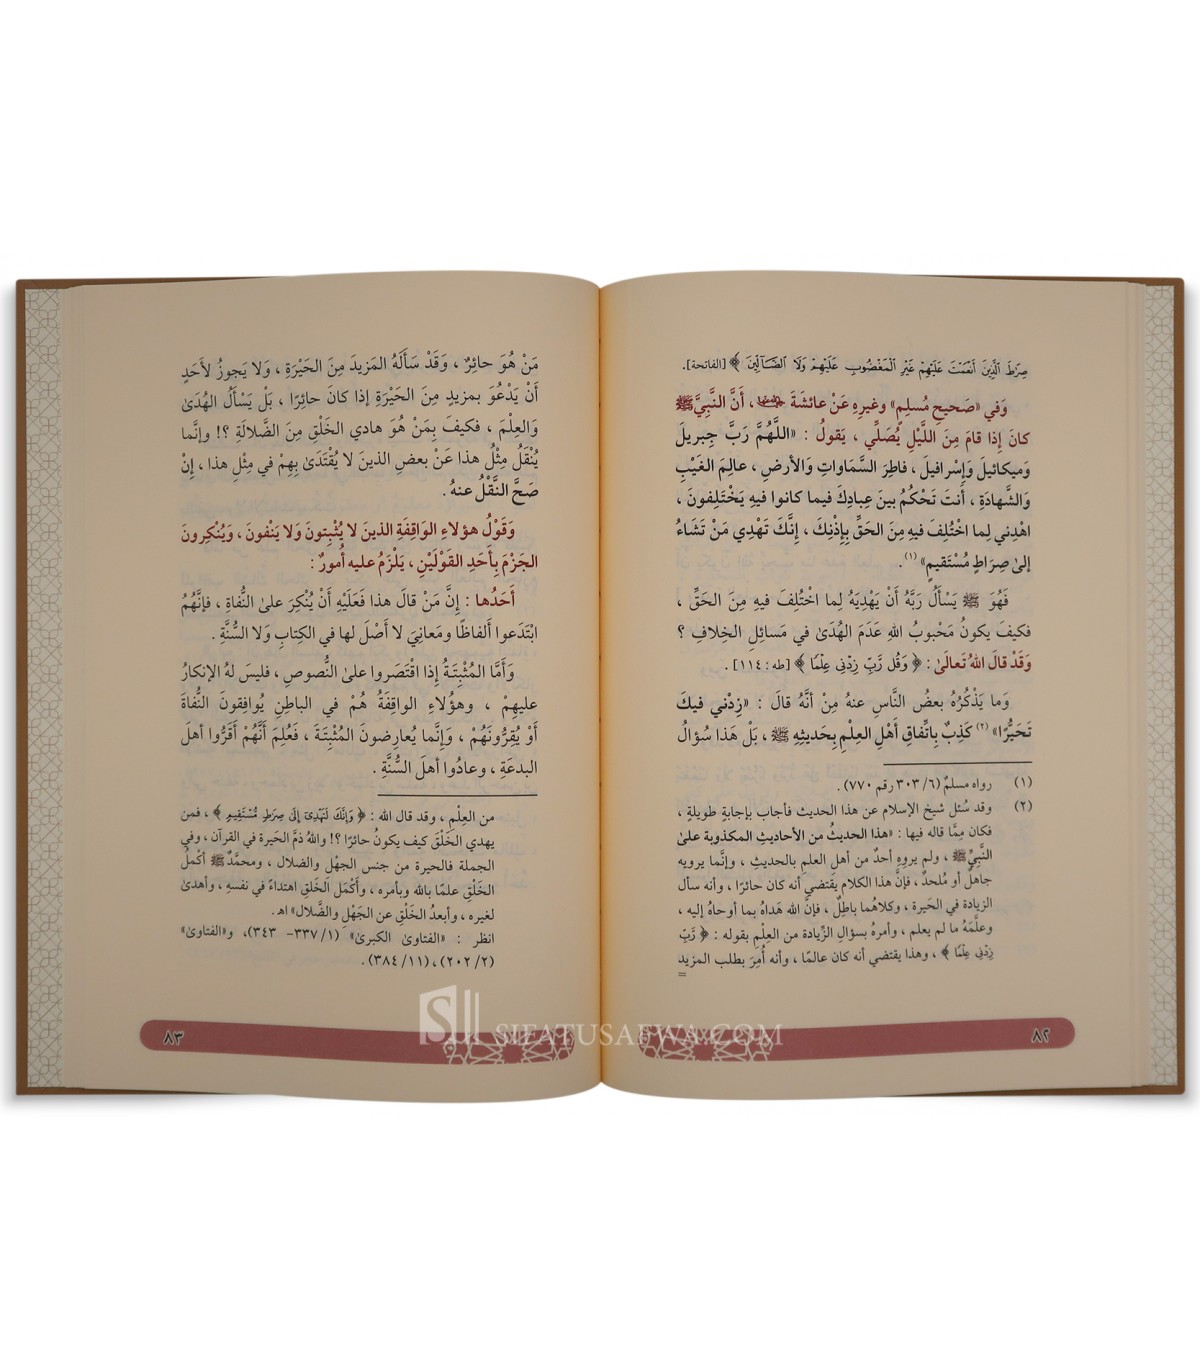 صِرَٰطَ الَّذِينَ أَنْعَمْتَ عَلَيْهِمْ غَيْرِ الْمَغْضُوبِ عَلَيْهِمْ وَلَا الضَّآلِّينَ ﴾ [الفاتحة].
وَفي «صَحيحِ مُسلِمٍ» وغيرِهِ عَنْ عائشَةَ ، أَنَّ النَّبِيَّ ﷺ
كانَ إِذا قامَ مِنَ اللَّيْلِ يُصَلِّي ، يَقولُ : «اللَّهُمَّ رَبَّ جِبريلَ
وَميكائيلَ وَإِسْرافيلَ ، فاطِرَ السَّمَاواتِ وَالأرضِ ، عالِمَ الغَيْبِ
وَالشَّهادَةِ ، أَنتَ تَحْكُمُ بَينَ عِبادِكَ فيما كانوا فيهِ يَخْتَلِفونَ ،
اهْدِني لِما اخْتُلِفَ فيهِ مِنَ الحَقِّ بِإِذْنِكَ ، إِنَّكَ تَهْدِي مَنْ تَشَاءُ
إِلىٰ صِرَاطٍ مُسْتَقيمٍ» (١).
فَهُوَ ﷺ يَسْأَلُ رَبَّهُ أَنْ يَهْدِيَهُ لِما اخْتُلِفَ فيهِ مِنَ الحَقِّ ،
فكيفَ يكونُ مَحْبوبُ اللهِ عَدَمَ الهُدَىٰ في مَسائلِ الخِلافِ ؟
وَقَدْ قالَ اللهُ تَعالَىٰ : ﴿ وَقُل رَّبِّ زِدْنِي عِلْمًا ﴾ [طه : ١١٤] .
وَما يَذْكُرُهُ بعضُ النَّاسِ عنهُ مِنْ أنَّهُ قالَ : «زِدْني فيكَ
تَحَيُّرًا» (٢) كَذِبٌ بِاتِّفاقِ أَهْلِ العِلْمِ بِحَديثِهِ ﷺ ، بَلْ هَذا سُؤالُ
(١) رواه مسلمٌ (٦/ ٣٠٣ رقم ٧٧٠) .
(٢) وقد سُئل شيخ الإسلام عن هذا الحديث فأجاب بإجابةٍ طويلةٍ ،
فكان مِمَّا قاله فيها : «هذا الحديثُ من الأحاديثِ المكذوبة علىٰ
النَّبيِّ ﷺ ، ولم يروِهِ أحدٌ من أهل العلمِ بالحديثِ ، وإنَّما يرويه
جاهلٌ أو مُلحدٌ ، فإنَّ هذا الكلام يَقتضي أنه كان حائرًا ، وأنه سأل
الزيادة في الحَيرة ، وكلاهُما باطِلٌ ، فإنَّ الله هَداهُ بما أوحاهُ إليه ،
وعلَّمَهُ ما لم يعلم ، وأمرهُ بسؤالِ الزِّيادة من العِلْمِ بقوله : ﴿ رَّبِّ
زِدْنِي عِلْمًا ﴾ ، وهذا يقتضي أنه كان عالمًا ، وأنه أُمِرَ بطلب المزيد
=
٨٢
مَنْ هُوَ حائِرٌ ، وَقَدْ سَأَلَهُ المَزيدَ مِنَ الحَيْرَةِ ، وَلا يَجوزُ لأَحَدٍ
أَنْ يَدْعُوَ بمزيدٍ مِنَ الحَيْرَةِ إذا كانَ حائِرًا ، بَلْ يَسْأَلُ الهُدَىٰ
وَالعِلْمَ ، فكيفَ بِمَنْ هُوَ هادي الخَلْقِ مِنَ الضَّلالَةِ ؟! وإنَّما
يُنْقَلُ مِثْلُ هذا عَنْ بعضِ الذينَ لا يُقْتَدَىٰ بِهِمْ في مِثْلِ هذا ، إِنْ
صَحَّ النَّقْلُ عنهُ .
وَقَوْلُ هؤلاءِ الوَاقِفَةِ الذينَ لا يُثْبِتونَ وَلا يَنْفونَ ، وَيُنْكِرونَ
الجَزْمَ بِأَحَدِ القَوْلَيْنِ ، يَلْزَمُ عليهِ أُمورٌ :
أَحَدُها : إِنَّ مَنْ قالَ هذا فَعَلَيْهِ أَنْ يُنْكِرَ علىٰ النُّفاةِ ، فإنَّهُمُ
ابْتَدَعوا أَلفاظًا ومَعانِيَ لا أَصْلَ لها في الكِتابِ وَلا السُّنَّةِ .
وَأَمَّا المُثْبِتَةُ إذا اقْتَصَروا علىٰ النُّصوصِ ، فليسَ لهُ الإنكارُ
عليهِمْ ، وهؤُلاءِ الواقِفَةُ هُمْ في الباطِنِ يُوافِقونَ النُّفاةَ
أَوْ يُقِرُّونَهُمْ ، وَإنَّما يُعارِضونَ المُثْبِتَةَ ، فَعُلِمَ أَنَّهُمْ أَقَرُّوا أَهلَ
البدعَةِ ، وعادُوا أهلَ السُّنَّةِ .
من العِلْمِ ، وقد قال الله : ﴿ وَإِنَّكَ لَتَهْدِي إِلَىٰ صِرَٰطٍ مُّسْتَقِيمٍ ﴾ ، فمن
يهدي الخَلْقَ كيف يكونُ حائرًا ؟! واللهُ ذمَّ الحَيرة في القرآن ، وفي
الجملة فالحيرة من جنس الجهْل والضلال ، ومحمَّدٌ ﷺ أكْملُ
الخَلْقِ علمًا بالله وبأمره ، وأكْمَل الخَلقِ اهتداءً في نفسهِ ، وأهدىٰ
لغيره ، وأبعدُ الخَلْقِ عن الجَهْلِ والضَّلال» اهـ .
انظر : «الفتاوىٰ الكبرىٰ» (١/ ٣٣٧- ٣٤٣)، و«الفتاوىٰ»
(٢/ ٢٠٢)، (١١/ ٣٨٤) .
٨٣
SIFATUSAFWA.COM